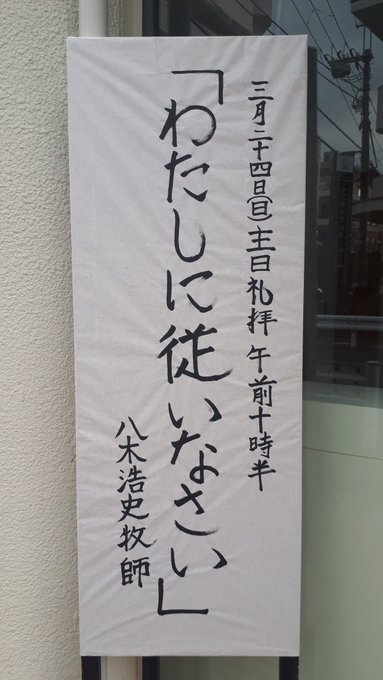 三月二十四日(日)主日礼拝 午前十時半
「わたしに従いなさい」
八木浩史牧師